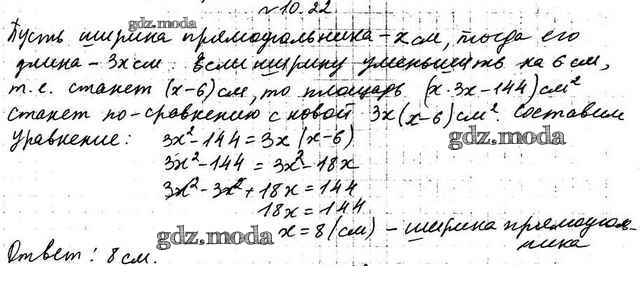 №10.22
gdz.moda
Пусть ширина прямоугольника - x см, тогда его
длина - 3x см. Если ширину уменьшить на 6 см,
т.е. станет (x-6) см, то площадь (x·3x-144) см²
станет по-сравнению с новой 3x(x-6) см². Составим
gdz.moda
уравнение: 3x²-144=3x(x-6)
3x²-144=3x²-18x
3x²-3x²+18x=144
18x=144
x=8(см) - ширина прямоугольника
gdz.moda
Ответ: 8 см.